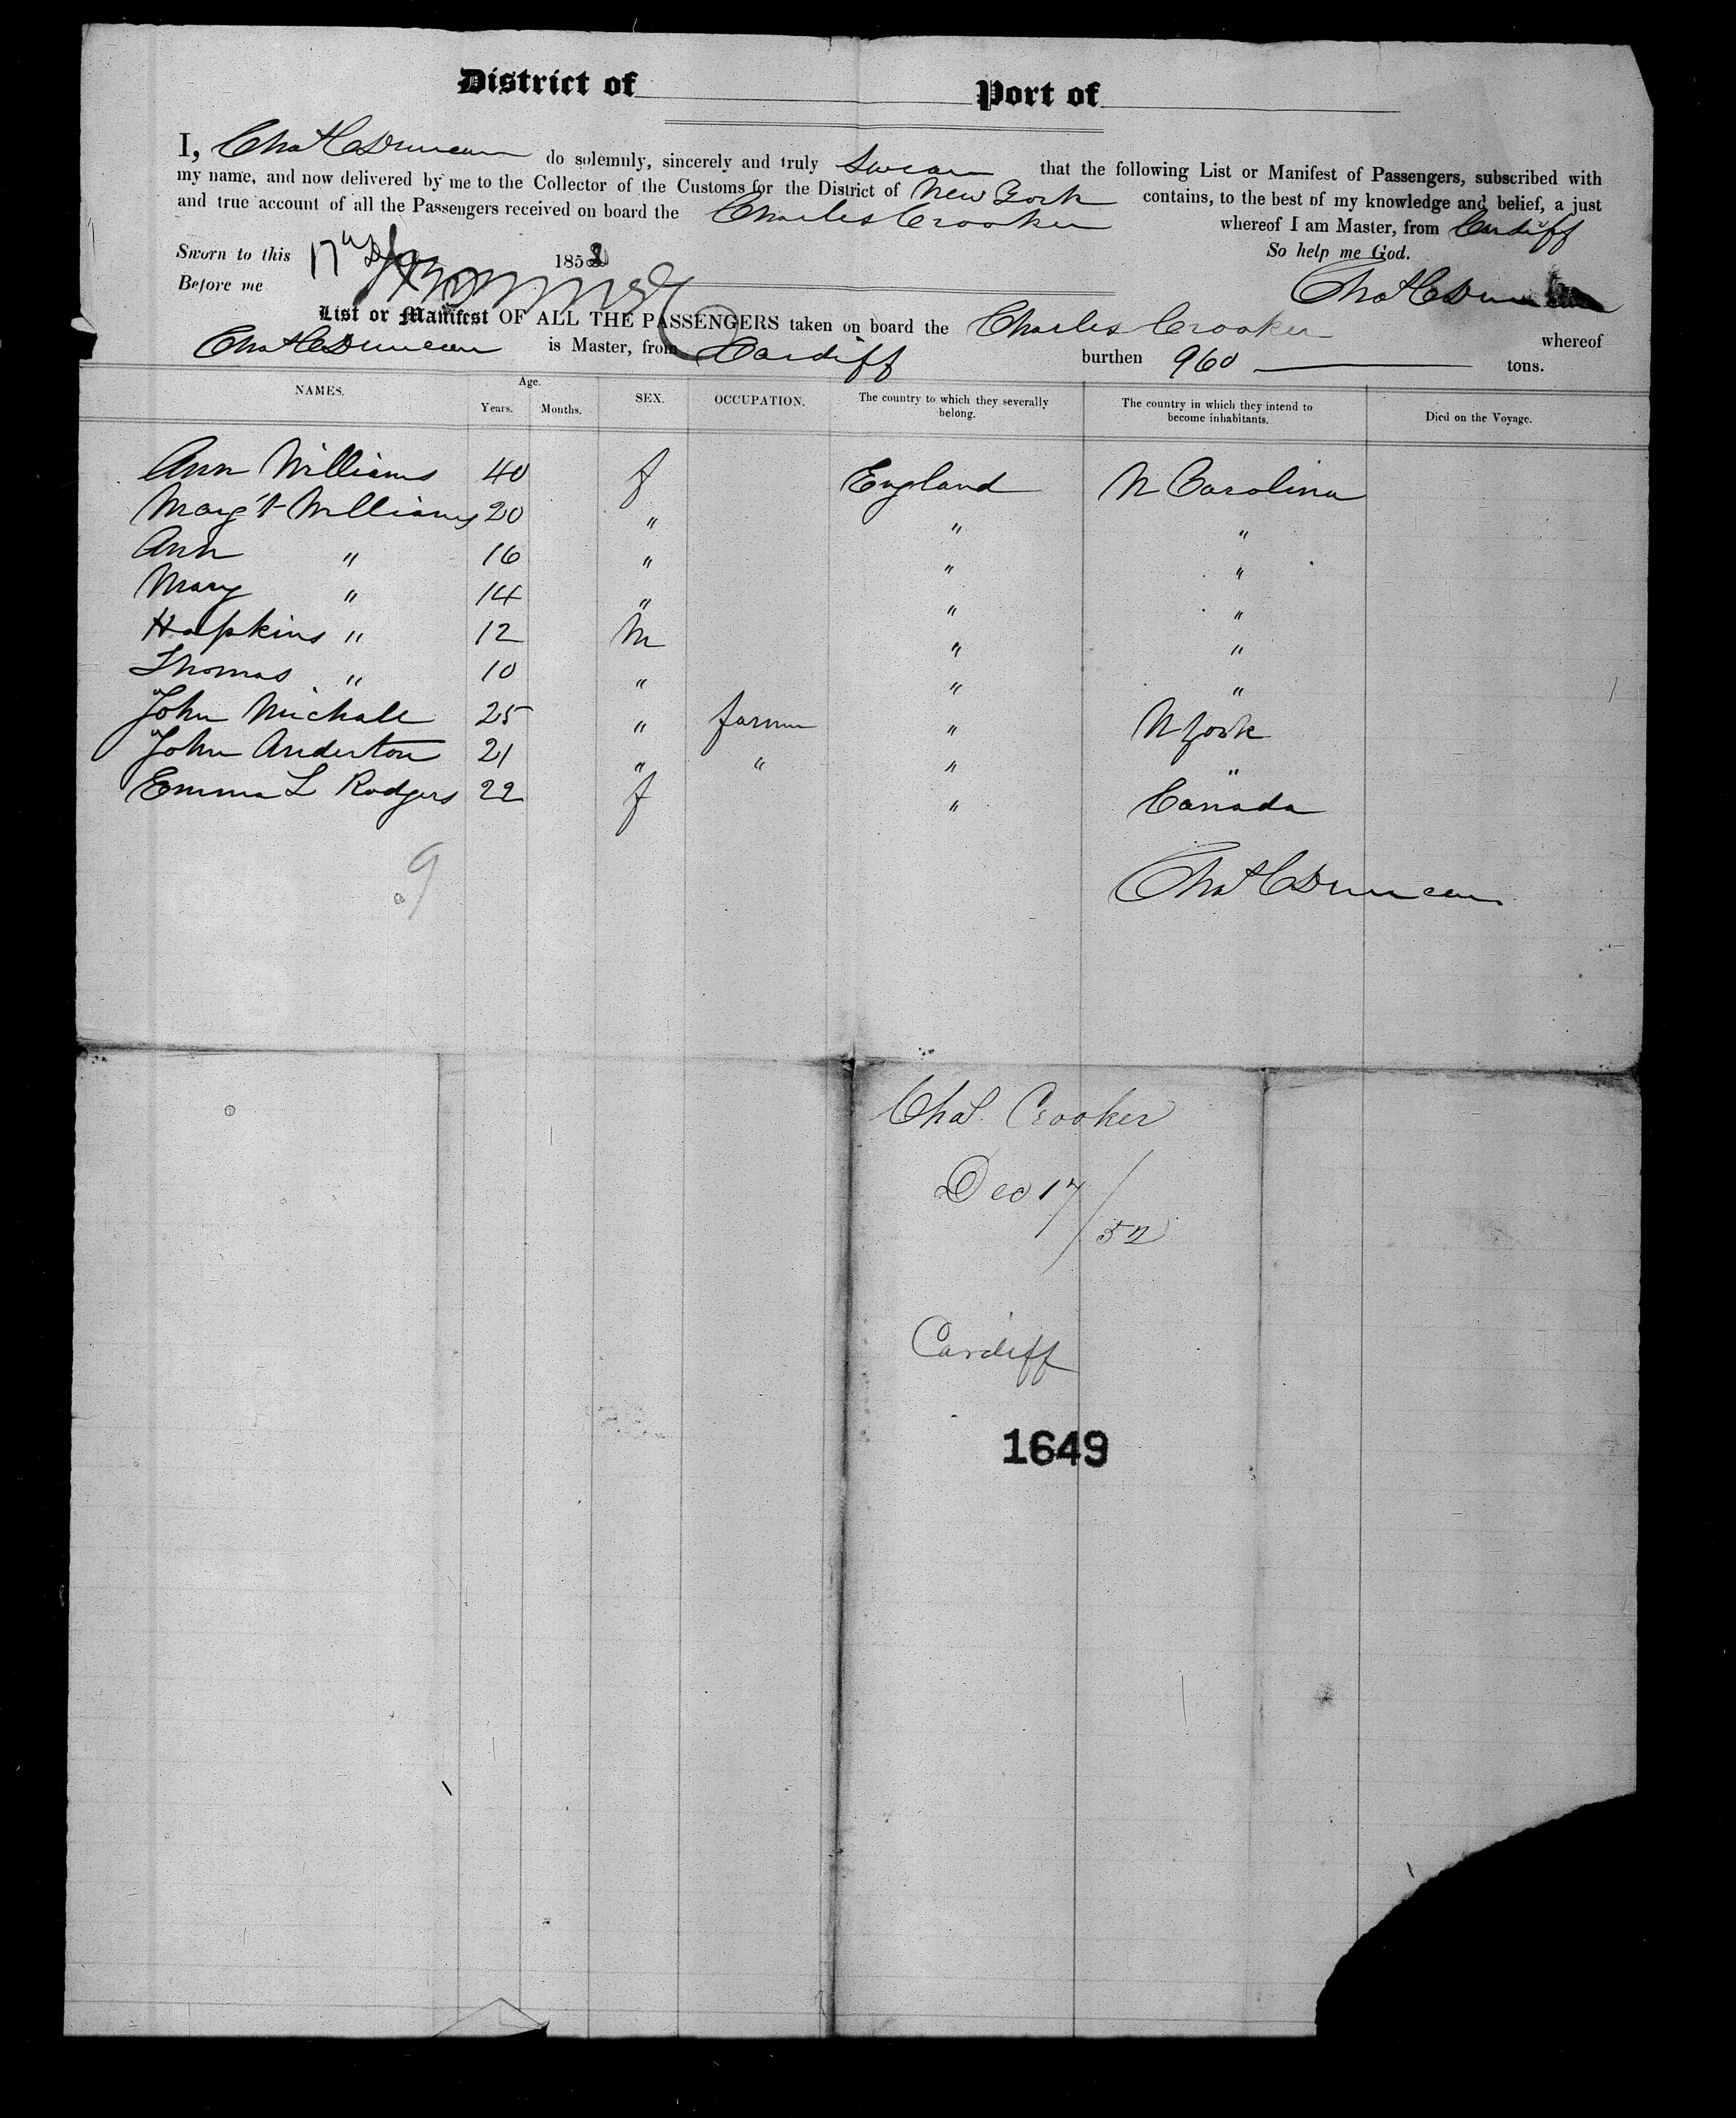 District of Port of
I, Chas C Duncan do solemnly, sincerely and truly swear that the following List or Manifest of Passengers, subscribed with
my name, and now delivered by me to the Collector of the Customs for the District of New York contains, to the best of my knowledge and belief, a just
and true account of all the Passengers received on board the Charles Crooker whereof I am Master, from Cardiff
So help me God.
Sworn to this 17th 1852
Before me
Chas C Duncan
List or Manifest OF ALL THE PASSENGERS taken on board the Charles Crooker whereof
Chas C Duncan is Master, from Cardiff burthen 960 tons.
NAMES. Age. Years. Months. SEX. OCCUPATION. The country to which they severally belong. The country in which they intend to become inhabitants. Died on the Voyage.
Ann Williams 40 f England N Carolina
Marg't Williams 20 " " "
Ann " 16 " " "
Mary " 14 " " "
Hopkins " 12 M " "
Thomas " 10 " " "
John Michall 25 " farmer " N York
John Anderton 21 " " " "
Emma L Rodgers 22 f " Canada
9
Chas C Duncan
Chas. Crooker
Dec 17/52
Cardiff
1649